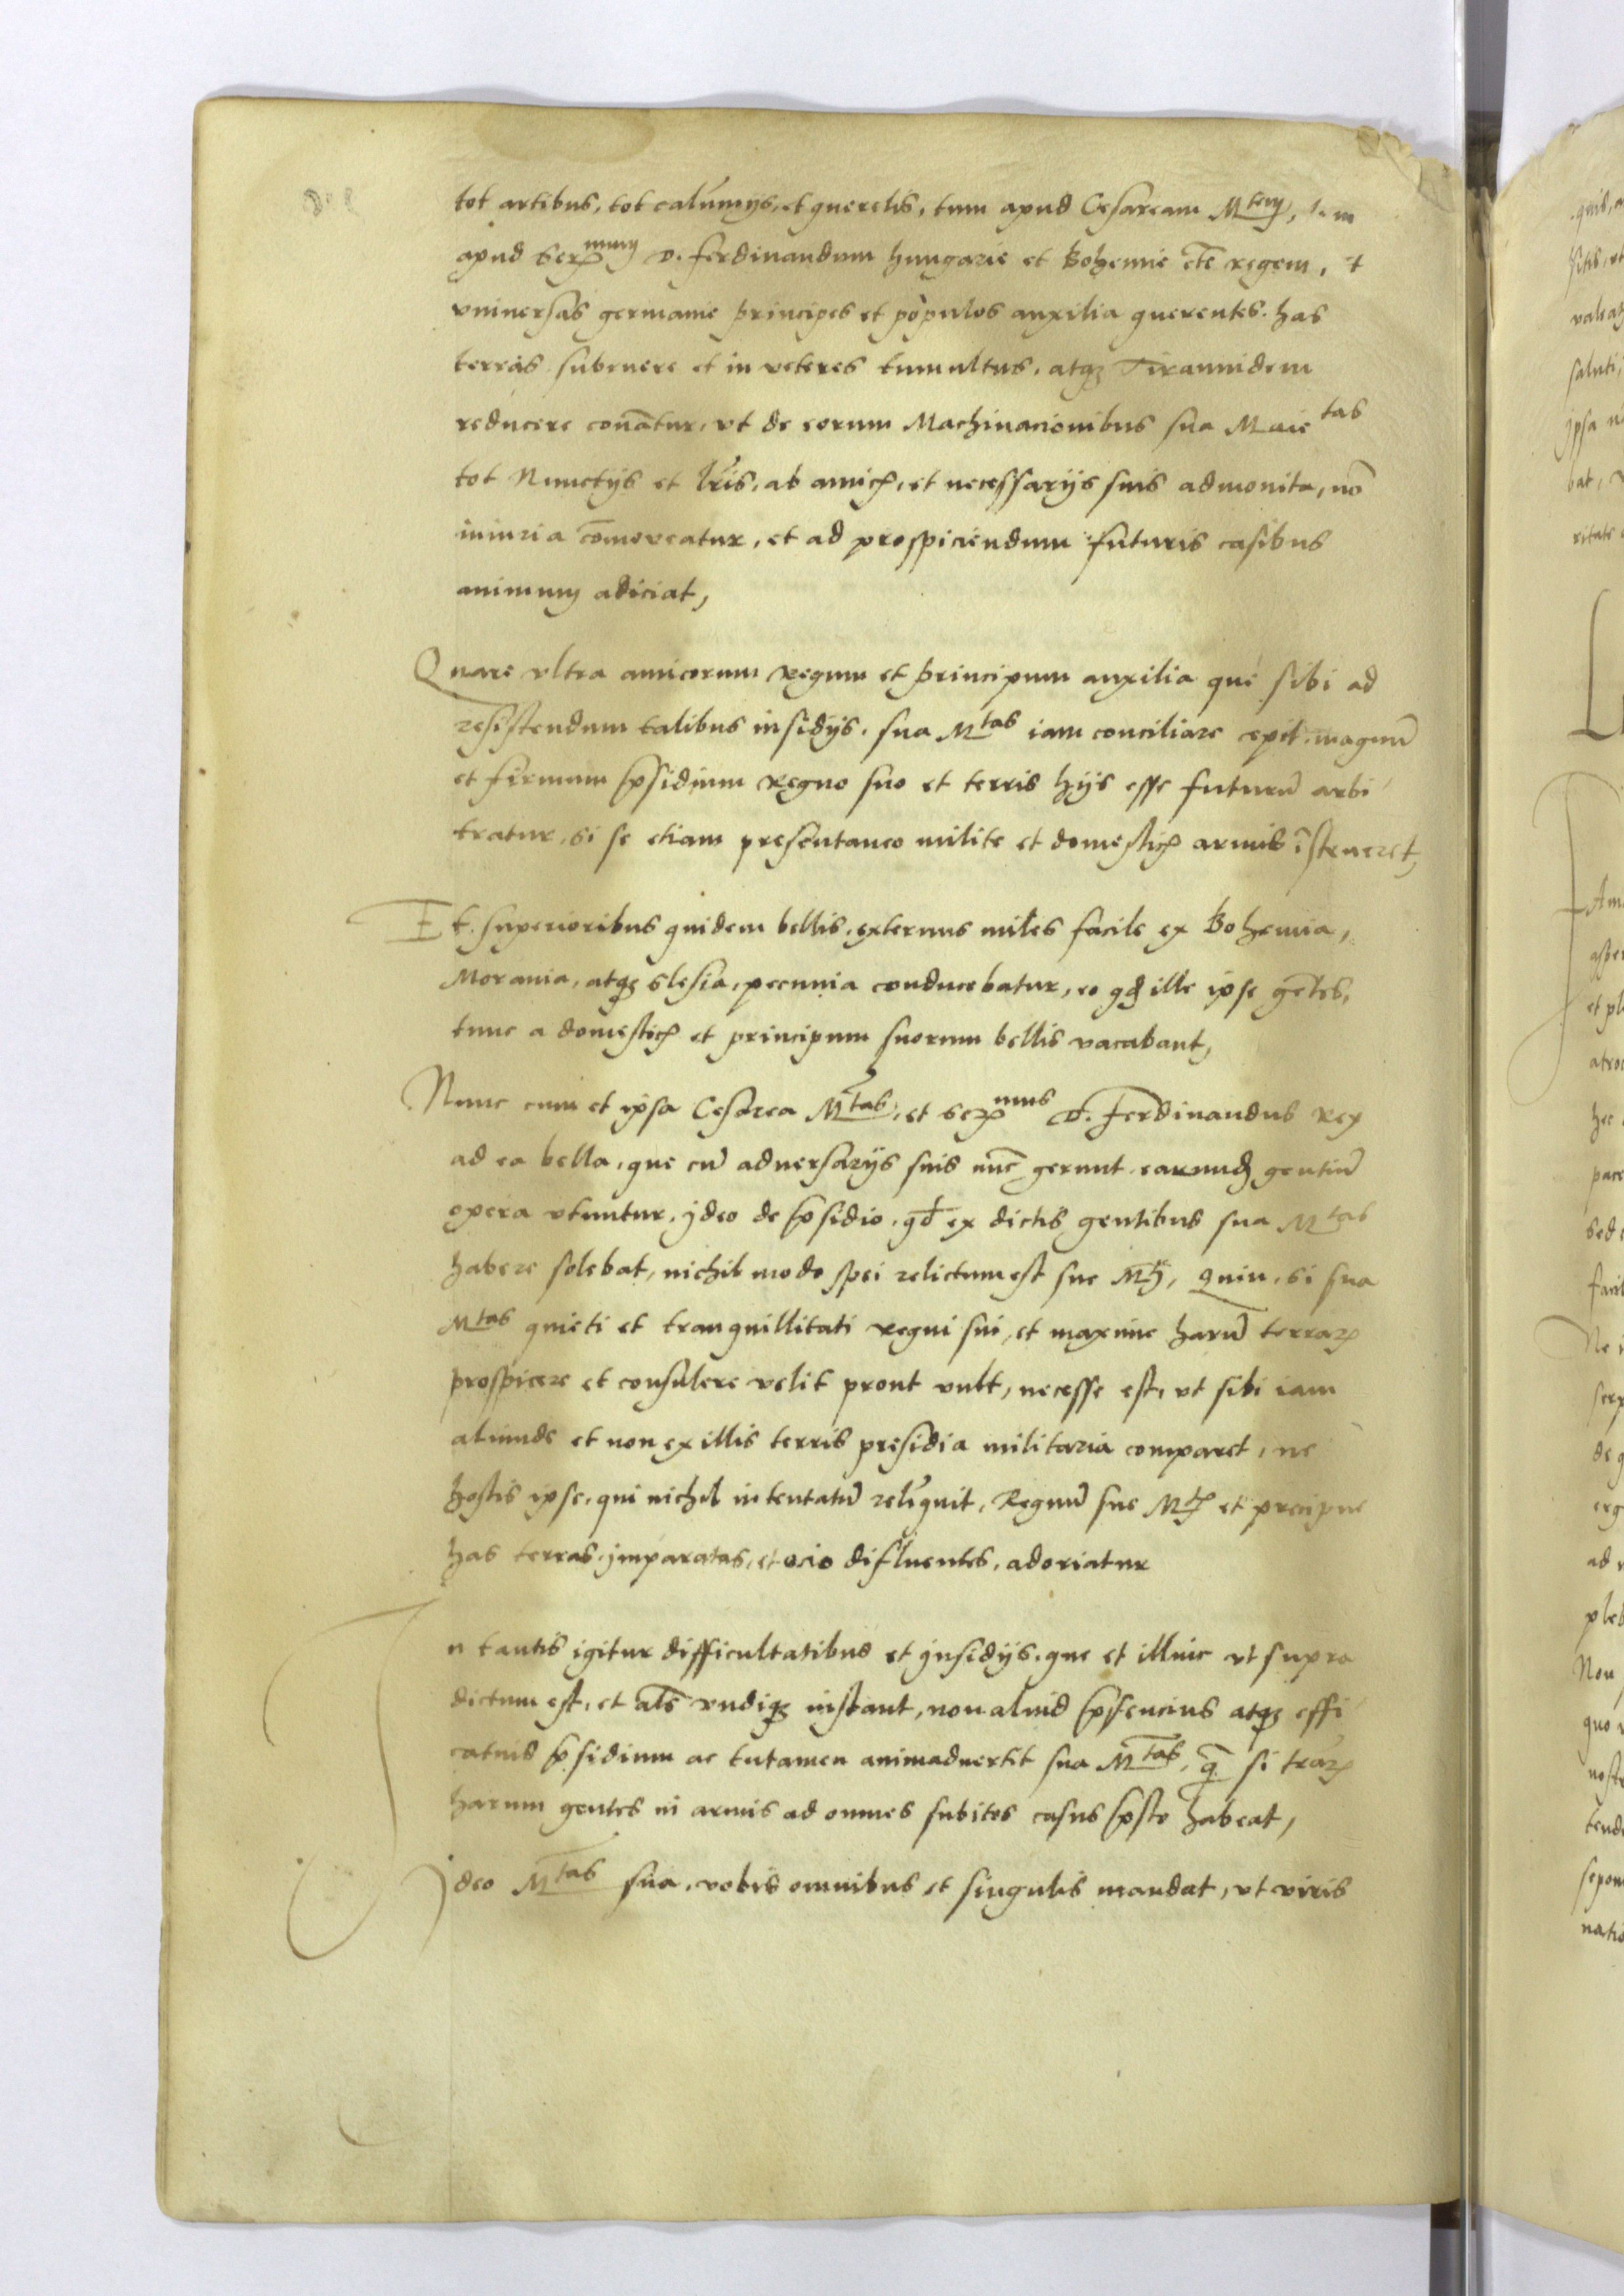 tot artibus, tot calūnijs, et querelis, tum apud Cesaream Mtem, tum
apud Sermum D. ferdinandum hungarie et Bohemie etc regem, et
vniuersas germanie principes et populos auxilia querentes. has
terras subruere et in veteres tumultus, atqȝ Tirannidem
reducere conātur, vt de eorum Machinacionibus sua Maietas
tot Nunctijs et lr̄is, ab amicꝭ, et necessarijs suis admonita, nō
iniuria cōmoueatur, et ad prospiciendum futuris casibus
animum adiciat,
Quare vltra amicorum regum et principum auxilia que sibi ad
resistendum talibus insidijs. sua Mtas iam conciliare cepit. magnū
et firmum p̄sidium regno suo et terris hijs esse futurū arbi
tratur, si se etiam presentaneo milite et domesticꝭ armis īstrueret,
Et superioribus quidem bellis, externus miles facile ex Bohemia,
Morauia, atqȝ slesia, pecunia conducebatur, eo qd ille ipse gētes,
tunc a domesticꝭ et principum suorum bellis vacabant,
Nunc cum et ipsa Cesarea Mtas, et Sermus D. Ferdinandus rex
ad ea bella, que cū aduersarijs suis nūc gerunt earund gentiū
opera vtuntur, jdeo de p̄sidio, qd ex dictis gentibus sua Mtas
habere solebat, nichil modo spei relictum est sue Mtj, Quin, si sua
Mtas quieti et tranquillitati regni sui, et maxime harū terraꝝ
prospicere et consulere velit prout vult, necesse est, vt sibi iam
aliunde et non ex illis terris presidia militaria comparet, ne
hostis ipse, qui nichil intentatū reliquit, Regnū sue Mtꝭ et precipue
has terras, jmparatas, et ocio difluentes, adoriatur
Jn tantis igitur difficultatibus et jnsidijs, que et illinc vt supra
dictum est, et al̄s vndiqȝ instant, non aliud p̄stencius atqȝ effi
catius p̄sidium ac tutamen animaduertit sua Mtas, q̄ si tr̄aꝝ
harum gentes in armis ad omnes subitos casus p̄sto habeat,
jdeo Mtas sua, vobis omnibus et singulis mandat, vt viris